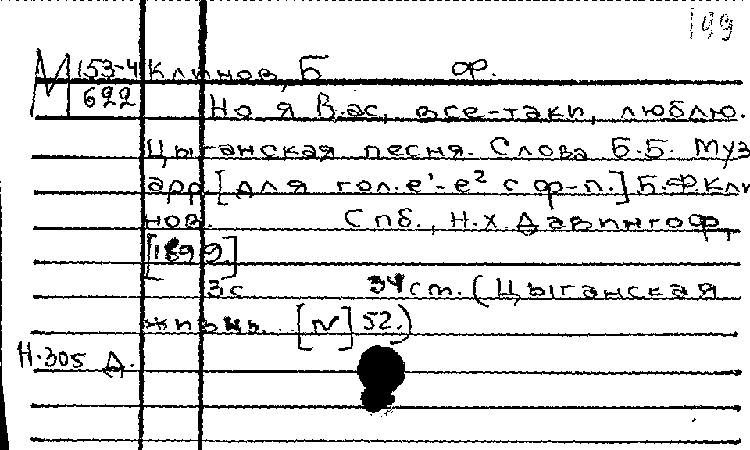 199
М 153-4 Клинов, Б. Ф.
622 Но я Вас, все-таки, люблю.
Цыганская песня. Слова Б.Б. Муз
арр [для гол. e¹-e² с ф-п.] Б.Ф. Кли
нов. Спб., Н.Х. Давингоф,
[1899]
3 с 34 cm. (Цыганская
жизнь. [N] 52.)
Н.305 Д.